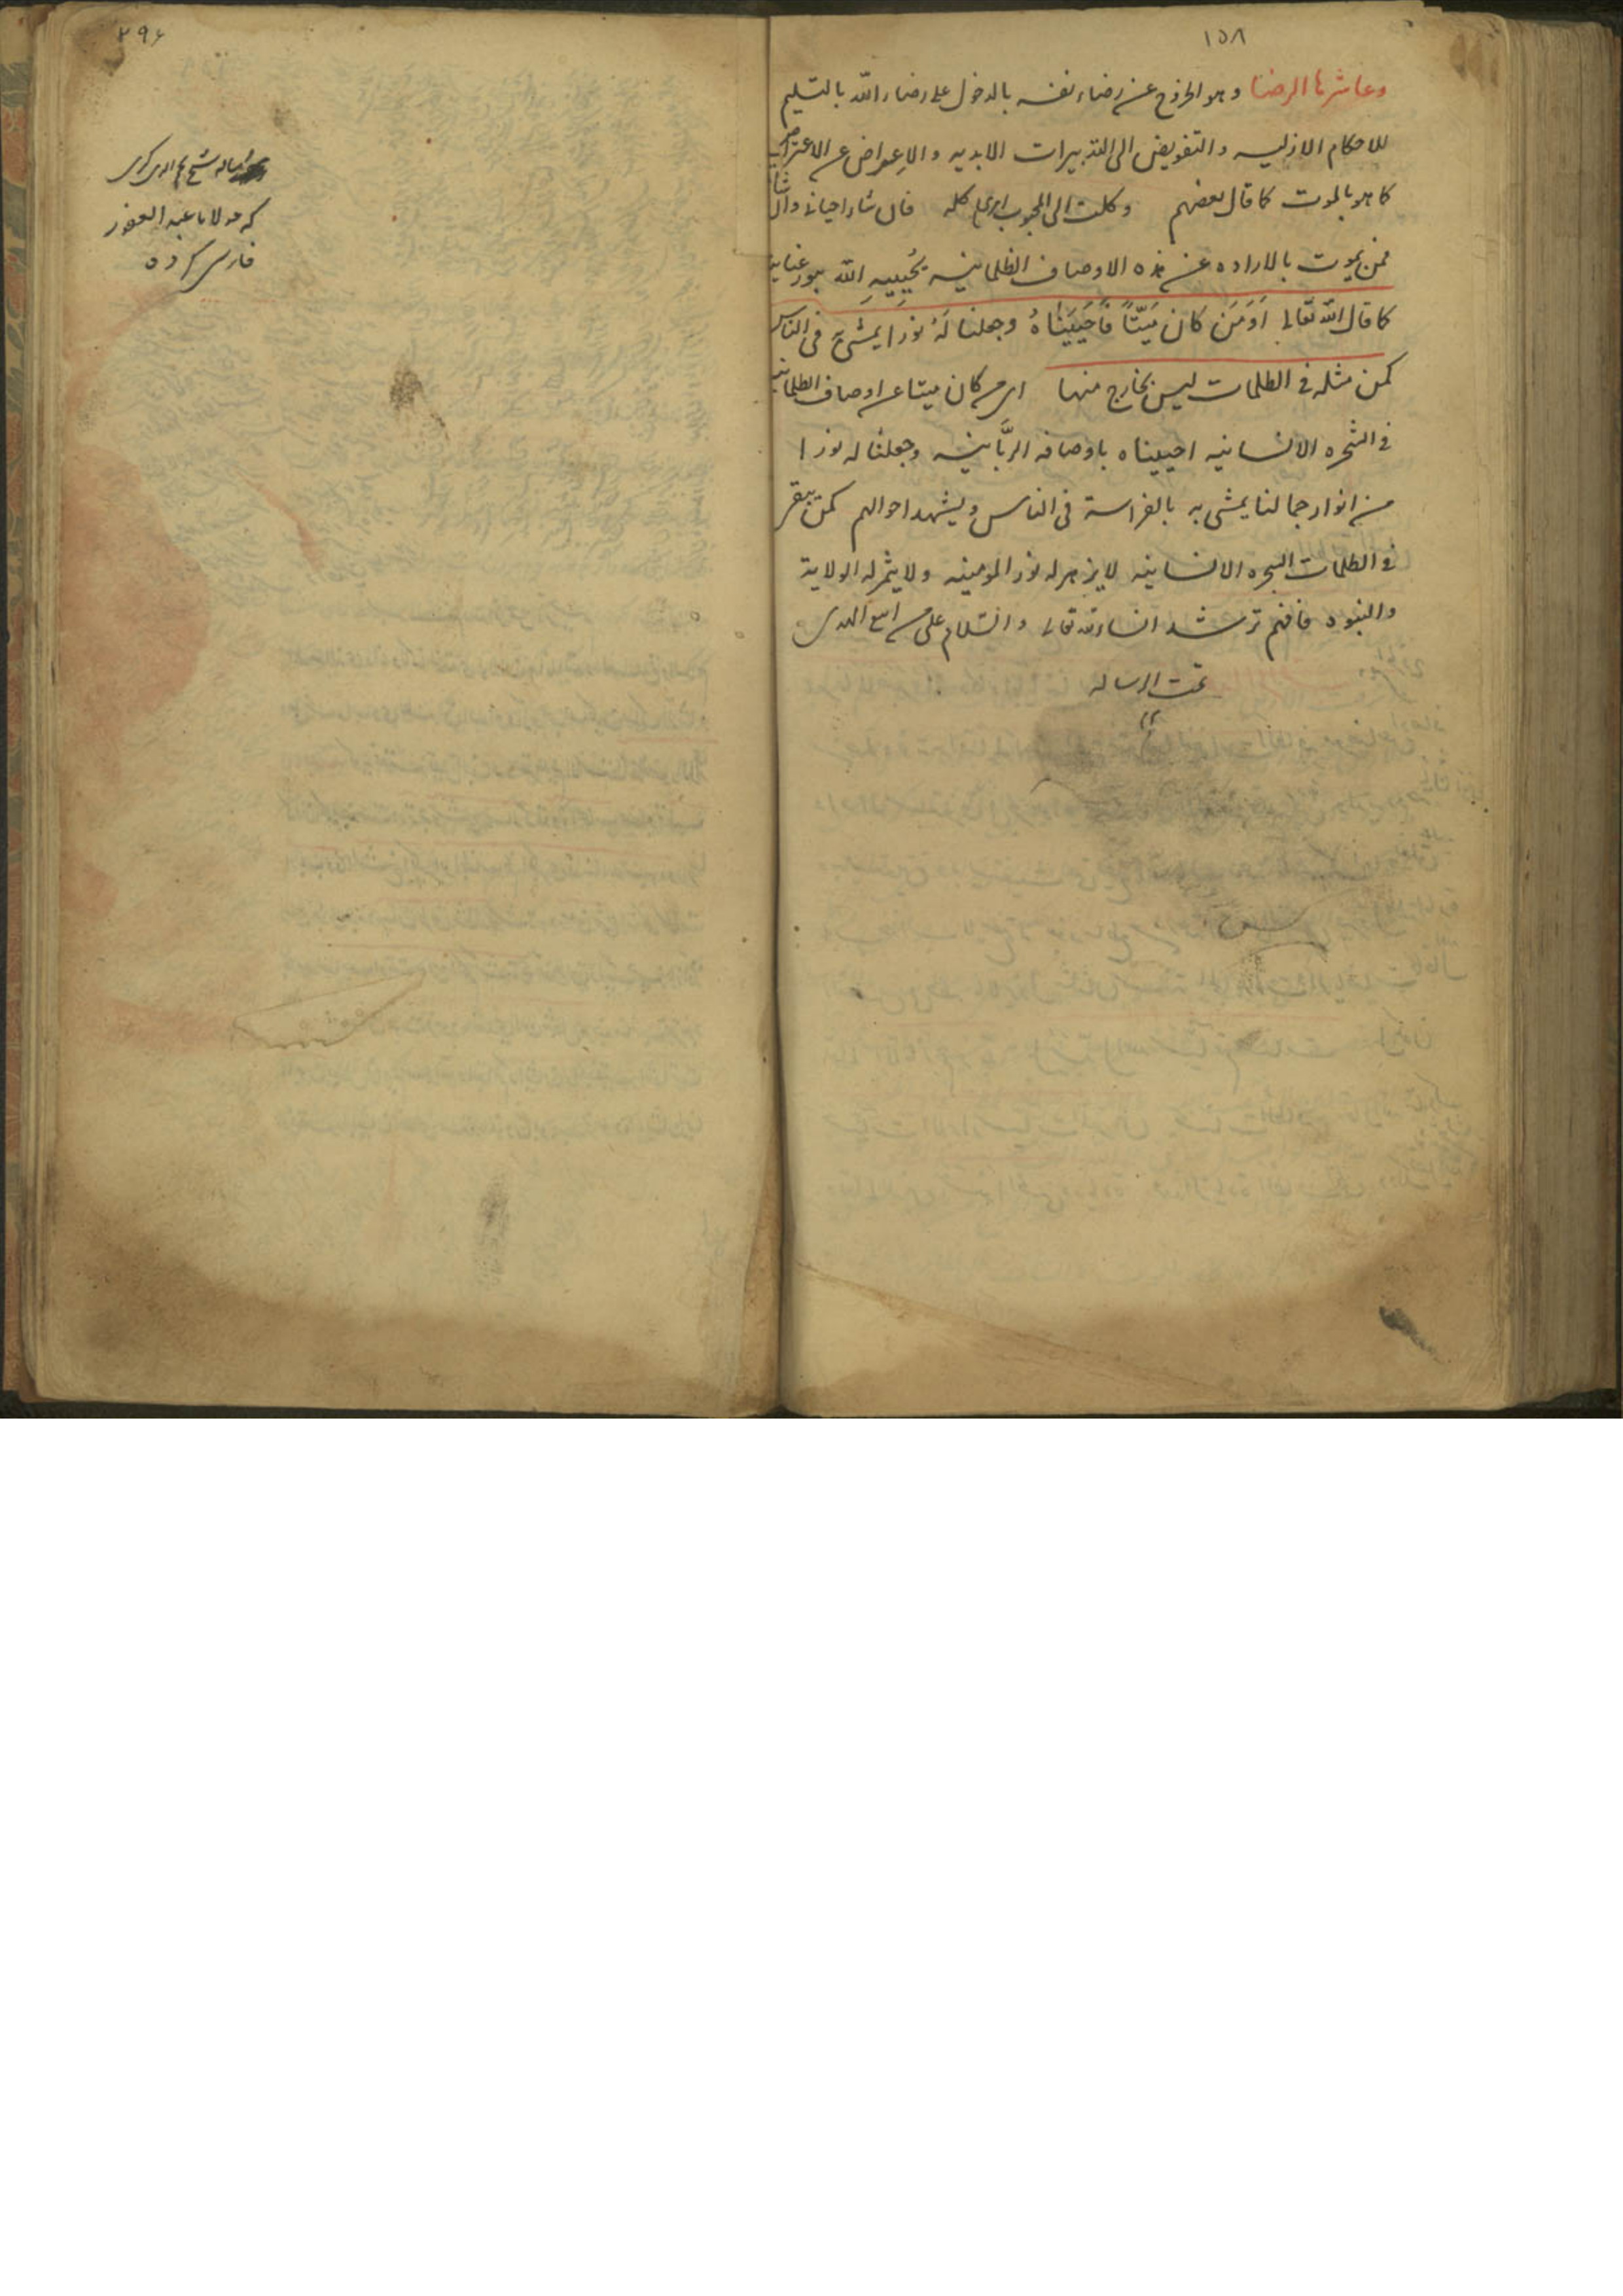 ١٥٨
وعاشرها الرضا وهو الخروج عن رضاء نفسه بالدخول على رضاء الله بالتسليم
للاحكام الازليه والتفويض الى التدبيرات الابديه والاعراض عن الاعتراض
كما هو بالموت كما قال بعضهم وكلت الى المحبوب امرى كله فان شاء احيانى وان شا
فمن يموت بالاراده عن هذه الاوصاف الظلمانيه يُحييهِ الله بنور عنايته
كما قال الله تعالى اَوَمَن كان مَيّتاً فاَحيَيناهُ وجعلنا لَهُ نورا يمشى فى الناس
كمن مثله فى الظلمات ليس بخارج منها اى من كان ميتا عن اوصاف الظلمانيه
فى الشجره الانسانيه احييناه باوصافه الربَّانيه وجعلنا له نورا
من انوار جمالنا يمشى به بالفراسة فى الناس ويشهد احوالهم كمن
فى الظلمات الشجره الانسانيه لا يزهر له نور المومنيه ولا يثمر له الولاية
والنبوه فافهم ترشد انشاء الله تعالى والسّلام على من اتبع الهدى
تمت الرساله
١٢
٢٩٤
رساله شيخ
كه مولانا عبد الغفور
فارسى كرده